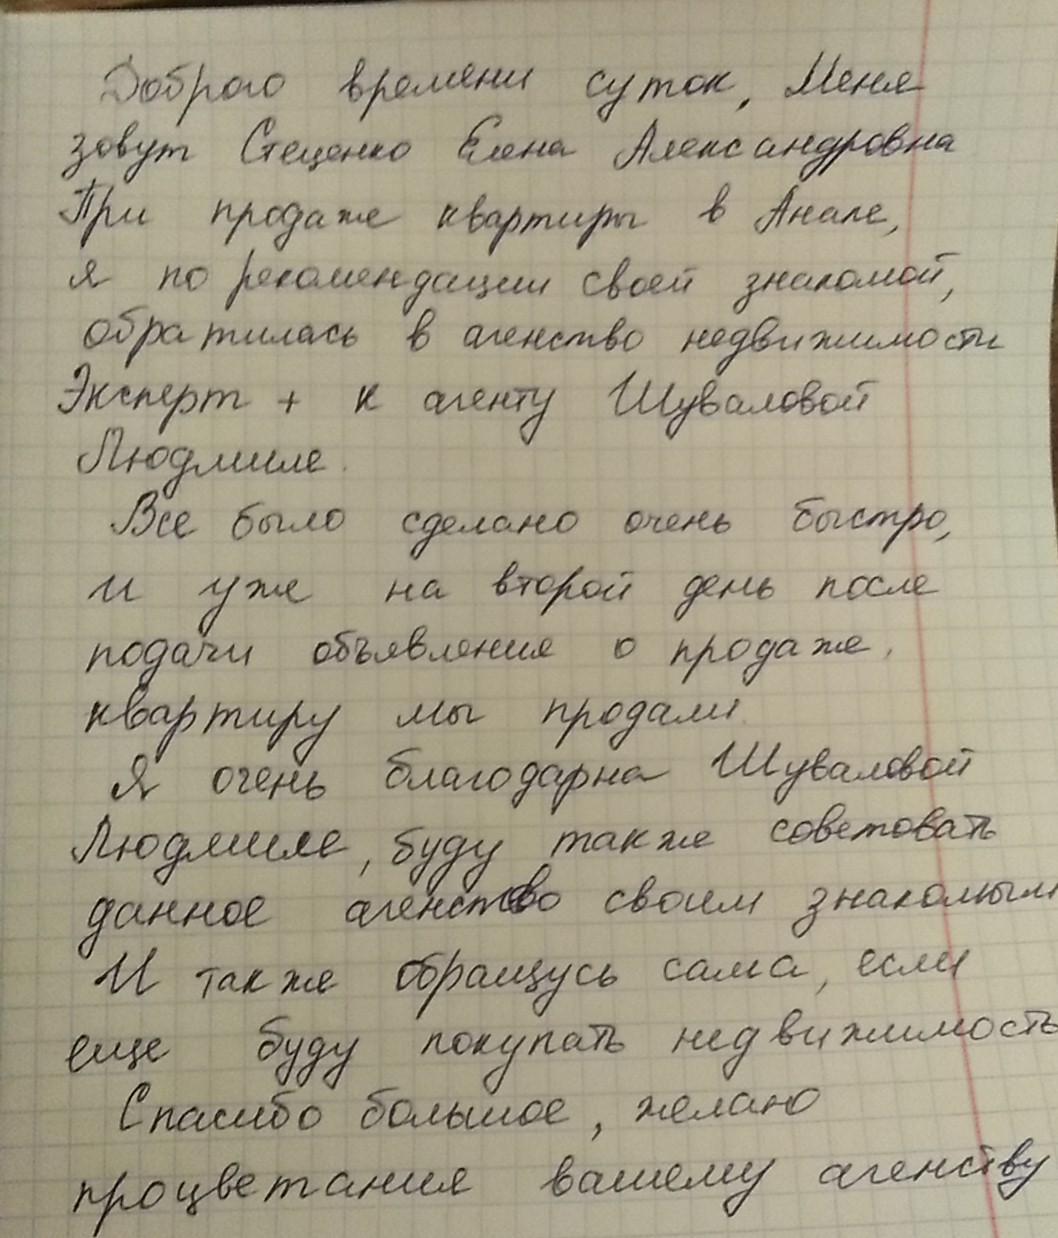 Доброго времени суток, Меня
зовут Стеценко Елена Александровна
При продаже квартиры в Анапе,
я по рекомендации своей знакомой,
обратилась в агенство недвижимости
Эксперт + к агенту Шуваловой
Людмиле.
Все было сделано очень быстро,
и уже на второй день после
подачи объявления о продаже,
квартиру мы продали.
Я очень благодарна Шуваловой
Людмиле, буду также советовать
данное агенство своим знакомым
И также обращусь сама, если
еще буду покупать недвижимость
Спасибо большое, желаю
процветания вашему агенству